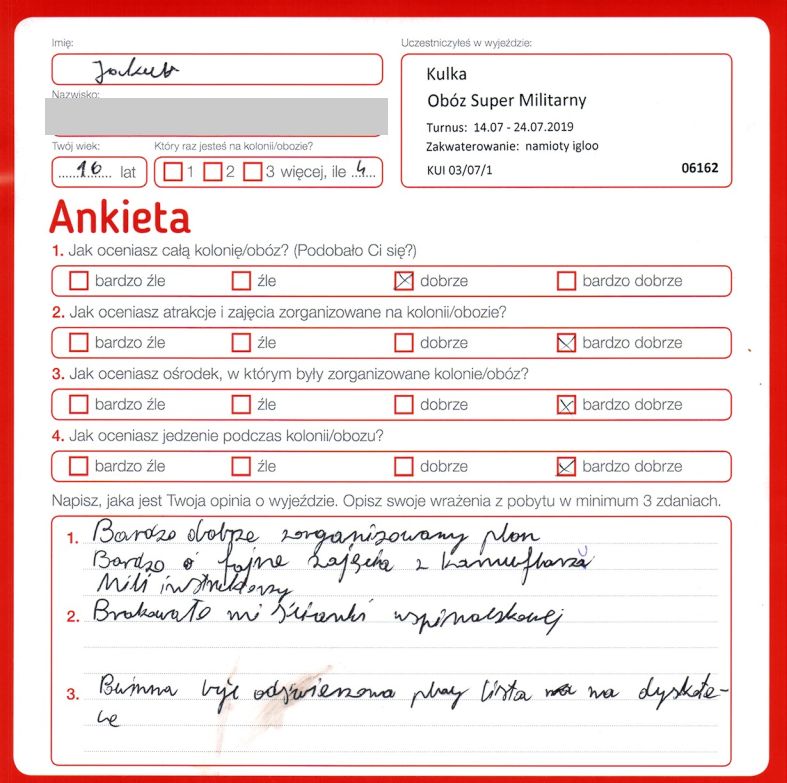 Imię:
Jakub
Uczestniczyłeś w wyjeździe:
Kulka
Obóz Super Militarny
Turnus: 14.07 - 24.07.2019
Zakwaterowanie: namioty igloo
KUI 03/07/1 06162
Nazwisko:
Twój wiek:
16 lat
Który raz jesteś na kolonii/obozie?
1 2 3 więcej, ile 4
Ankieta
1. Jak oceniasz całą kolonię/obóz? (Podobało Ci się?)
bardzo źle źle dobrze bardzo dobrze
2. Jak oceniasz atrakcje i zajęcia zorganizowane na kolonii/obozie?
bardzo źle źle dobrze bardzo dobrze
3. Jak oceniasz ośrodek, w którym były zorganizowane kolonie/obóz?
bardzo źle źle dobrze bardzo dobrze
4. Jak oceniasz jedzenie podczas kolonii/obozu?
bardzo źle źle dobrze bardzo dobrze
Napisz, jaka jest Twoja opinia o wyjeździe. Opisz swoje wrażenia z pobytu w minimum 3 zdaniach.
1. Bardzo dobrze zorganizowany plan
Bardzo fajne zajęcia z kamuflarzu
Mili instruktorzy
2. Brakowało mi ścianki wspinalskowej
3. być odświerzona play lista na dyskote-
ce